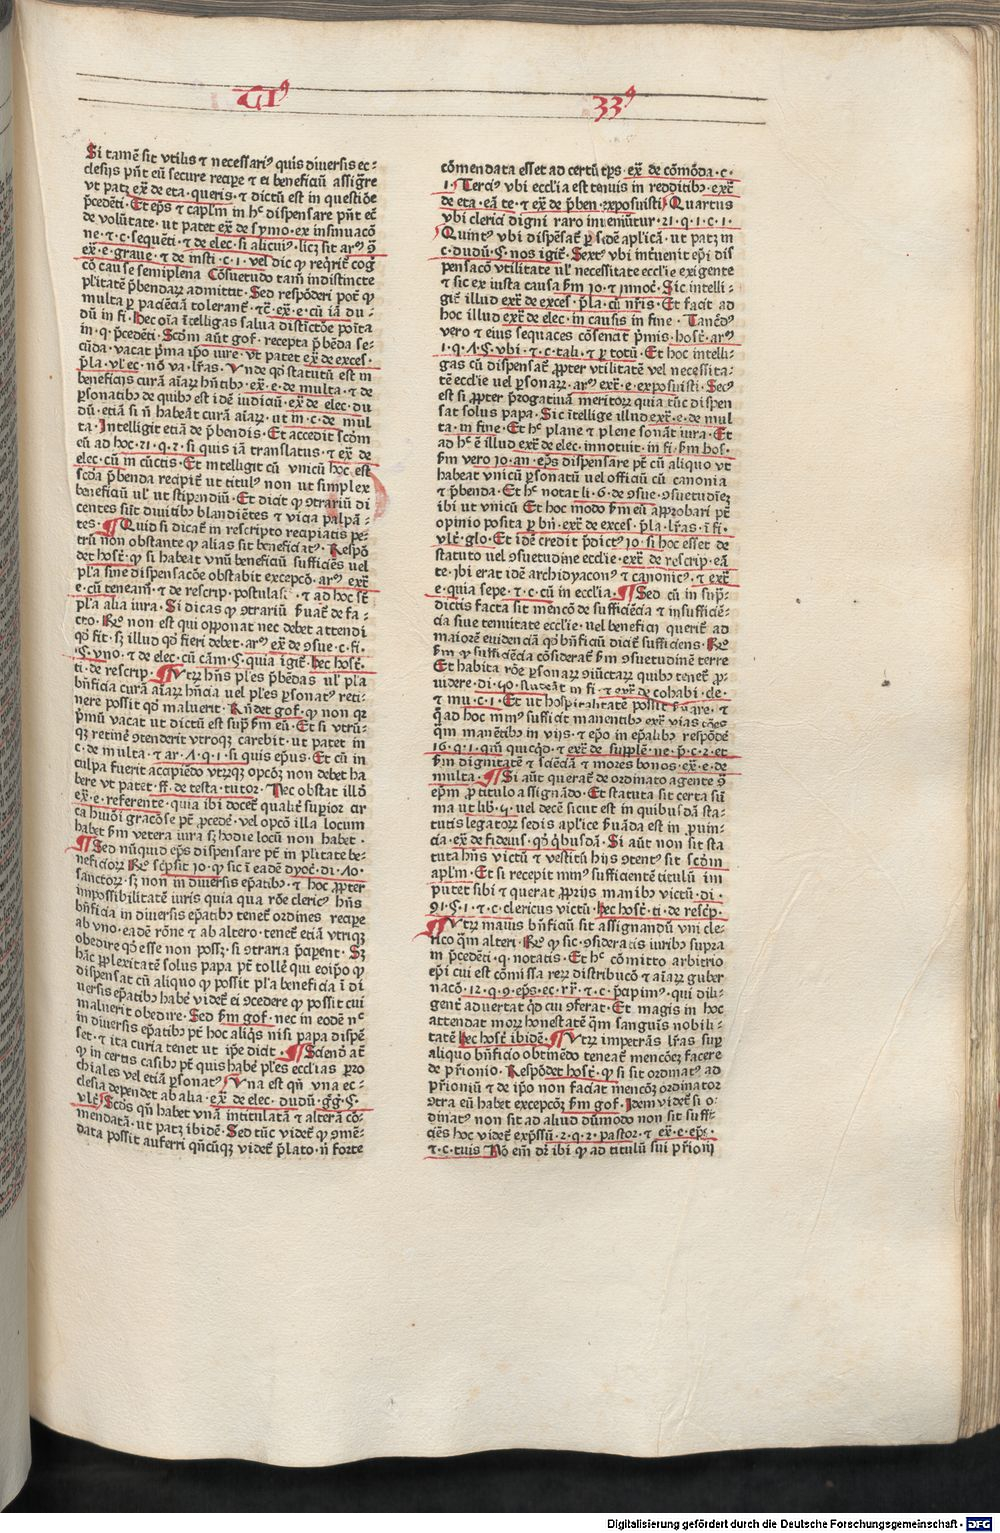 TI⁹ 33⁹
Si tamē sit vtilis ⁊ necessari⁹ quis diuersis ec⸗
clesijs pn̄t eū secure recipe ⁊ ei beneficiū assigr̄e
vt patꝫ ex̄ de eta · queris · ⁊ dictū est in questiōe
p̄cedēti · Et ep̄s ⁊ capl̄m in hͨ dispensare pn̄t eē
de volūtate · ut patet ex̄ de symo · ex insinuacō
ne · ⁊ · c · sequēti · ⁊ de elec · si alicui⁹ · licꝫ sit ar⁹ ꝯ̄
ex̄ · e · graue · ⁊ de insti · c · 1 · vel dic ꝙ req̄rit̄ coḡ
cō cause semiplena Cōsuetudo tam̄ indistincte
pl̄itatē p̄bendaꝝ admittit · Sed respōderi pot̄ ꝙ
multa ꝑ paciēciā tolerant̄ · ⁊c̄ · ex̄ · e · cū iā du⸗
dū in fi · Hec oīa ītelligas salua distīctōe poīta
in · q · p̄cedēti · Scōm aūt gof · recepta p̄bēda se⸗
cūda · vacat p̄ma ip̄o iure · vt patet ex̄ de exces ·
p̄la · vl̄ ec · nō va · lr̄as · Vnde qđ statutū est in
beneficijs curā aīaꝝ hn̄tibꝰ · ex̄ · e · de multa · ⁊ de
ꝑsonatibꝰ de quibꝰ est idē iudiciū · ex̄ de elec · du
dū · etiā si n̄ habeāt curā aīaꝝ · ut in · c · de mul
ta · Intelligit etiā de p̄bendis · Et accedit scōm
eū ad hoc · 21 · q · 2 · si quis iā translatus · ⁊ ex̄ de
elec · cū in cūctis · Et intelligit cū vnicū hoc est
scd̄a p̄benda recipit̄ ut titulꝰ non ut simplex
beneficiū ul̄ ut stipendiū · Et dicit ꝙ ꝯtrariū di
centes sūt diuitibꝰ blandiētes ⁊ vicia palpā⸗
tes · ¶ Quid si dicat̄ in rescripto recipiatis pe⸗
trū non obstante ꝙ alias sit beneficiatꝰ · Respō
det host̄ · ꝙ si habeat vnū beneficiū sufficiēs vel
pl̄a sine dispensacōe obstabit excepcō · ar⁹ ext̄
e · cū teneam̄ · ⁊ de rescrip · postulasti · ⁊ ad hoc st̄
pl̄a alia iura · Si dicas ꝙ ꝯtrariū ẜuat̄ de fa⸗
cto · R̄o non est qui opponat nec debet attendi
qđ fit · sꝫ illud qđ fieri debet · ar⁹ ex̄ de ꝯsue · c · fi ·
· ¶ · vno · ⁊ de elec · cū cām · ¶ · quia īgit̄ · hec host̄ ·
ti · de rescrip · ¶ Vtꝝ hn̄s pl̄es p̄bēdas ul̄ pl̄a
bn̄ficia curā aīaꝝ hn̄cia vel pl̄es ꝑsonatꝰ reti⸗
nere possit qđ maluerit · Rn̄det gof · ꝙ non qꝛ
p̄mū vacat ut dictū est sup̄ ẜm eū · Et si vtrū⸗
qꝫ retinē ꝯtenderit vtroqꝫ carebit · ut patet in
c · de multa · ⁊ ar · Λ · q · 1 · si quis ep̄us · Et cū in
culpa fuerit accipiēdo vtrūqꝫ opcōꝫ non debet ha
bere vt patet · ff · de testa · tutor · Nec obstat illđ
ex̄ · e · referente · quia ibi docet̄ qualit̄ supior cir
ca hm̄oi graciōse pt̄ ꝓcedē · vel opcō illa locum
habet ẜm vetera iura sꝫ hodie locū non habet ·
¶ Sed nūquid ep̄s dispensare pt̄ in pl̄itate be⸗
neficioꝝ R̄o sc̄psit 10 · ꝙ sic ī eadē dyoc̄ · di · Λ0 ·
sanctoꝝ · sꝫ non in diuersis ep̄atibꝰ · ⁊ hoc ꝓpter
impossibilitatē iuris quia qua rōe clericꝰ hn̄s
bn̄ficia in diuersis ep̄atibꝰ tenet̄ ordines recipe
ab vno · eadē rōne ⁊ ab altero · tenet̄ etiā vtriqꝫ
obedire qđ esse non possꝫ · si ꝯtraria p̄ciꝑent · Sꝫ
hāc ꝑplexitatē solus papa pt̄ tollē qui eoip̄o ꝙ
dispensat cū aliquo ꝙ possit pl̄a beneficia ī di
uersis ep̄atibꝰ habē videt̄ ei ꝯcedere ꝙ possit cui
maluerit obedire · Sed ẜm gof · nec in eodē nͨ
in diuersis ep̄atibꝰ pt̄ hoc aliq̄s nisi papa dispē
set · ⁊ ita curia tenet ut ip̄e dicit · ¶ Sciend̄ āt̄
ꝙ in certis casibꝰ pt̄ quis habē pl̄es eccl̄ias ꝑro
chiales vel etiā ꝑsonatꝰ Vna est qn̄ vna ec⸗
clesia dependet ab alia · ex̄ de elec · dudū · g̅g̅ · ¶ ·
vl̄t̄ Scđs qn̄ habet vnā intitulatā ⁊ alterā cō⸗
mendatā · ut patꝫ ibidē · Sed tūc videt̄ ꝙ ꝯmē⸗
data possit auferri qn̄cūqꝫ videt̄ p̄lato · n̄ forte
cōmendata esset ad certū tp̄s · ex̄ de cōmōda · c ·
1 · Terciꝰ vbi eccl̄ia est tenuis in redditibꝰ · ext̄
de eta · eā te · ⁊ ex̄ de p̄ben · exposuisti Quartus
vbi clerici digni raro inueniūtur · 21 · q · 1 · c · 1 ·
Quintꝰ vbi dispēsat̄ ꝑ sedē aplicā · ut patꝫ in
c · dudū · ¶ · nos igit̄ · Sextꝰ vbi int̄uenit ep̄i dis
pensacō vtilitate ul̄ necessitate eccl̄ie exigente
⁊ sic ex iusta causa ẜm 10 · ⁊ īnoc̄ · Sic intelli⸗
git̄ illud ext̄ de exces · p̄la · cū nr̄is · Et facit ad
hoc illud ext̄ de elec · in causis in fine · Tancd⁹
vero ⁊ eius sequaces cōsenāt p̄mis · host̄ · ar⁹
1 · q · Λ · ¶ · vbi · ⁊ · c · tali · ⁊ ꝑ totū · Et hoc intelli⸗
gas cū dispensat̄ ꝓpter utilitatē vel necessita⸗
tē eccl̄ie uel ꝑsonaꝝ · ar⁹ ext̄ · e · exposuisti · Sec⁹
est si ꝓpter p̄rogatiuā meritoꝝ quia tūc dispen
sat solus papa · Sic ītellige illud ext̄ · e · de mul
ta · in fine · Et hͨ plane ⁊ plene sonāt iura · Et
ad hͨ ē illud ext̄ de elec · innotuit · in fi · ẜm hos̄ ·
ẜm vero 10 · an · ep̄s dispensare pt̄ cū aliquo vt
habeat vnicū ꝑsonatū uel officiū cū canonia
⁊ p̄benda · Et hͨ notat li · 6 · de ꝯsue · ꝯsuetudīeꝫ
ibi ut vnicū Et hoc modo ẜm eū approbari pt̄
opinio posita ꝑ bn̄ · ext̄ de exces · p̄la · lr̄as · ī fi ·
vl̄t̄ · glo · Et idē credit p̄dictꝰ 10 · si hoc esset de
statuto uel ꝯsuetudine eccl̄ie · ext̄ de rescrip · eā
te · ibi erat idē archidyaconꝰ ⁊ canonicꝰ · ⁊ ext̄
e · quia sepe · ⁊ · c · cū in eccl̄ia · ¶ Sed cū in sup̄⸗
dictis facta sit mencō de sufficiēcia ⁊ insufficiē⸗
cia siue tenuitate eccl̄ie · vel beneficij querit̄ ad
maiorē euidenciā qđ bn̄ficiū dicat̄ sufficiens · R̄o
ẜm ꝙ sufficiēcia cōsiderat̄ ẜm ꝯsuetudinē terre
Et habita rōe ꝑsonaꝝ ꝯiūctaꝝ quibꝰ tenet̄ ꝓ⸗
uidere · di · 50 · studeāt in fi · ⁊ ext̄ de cohabi · cle ·
⁊ mu · c · 1 · Et ut hospitalitatē possit ẜuare · ⁊
q̄ ad hoc mīnꝰ sufficit manentibꝰ extͣ vias cōēs
q̄m manētibꝰ in vijs · ⁊ ep̄o in ep̄alibꝰ respōdē
16 · q · 1 · qm̄ quicqđ · ⁊ ext̄ de supplē · ne · p̄ · c · 2 · et
ẜm dignitatē ⁊ sciēciā ⁊ mores bonos · ex̄ · e · de
multa · ¶ Si aūt querat̄ de ordinato agente ꝯ̄
ep̄m ꝓ titulo assignādo · Et statuta sit certa sū
ma ut lib̄ · 5 · vel decē sicut est in quibusdā sta⸗
tutis legatoꝝ sedis aplice ẜuāda est in ꝓuin⸗
cia · ex̄ de fideius · qđ qͥbusdā · Si aūt non sit sta
tuta hn̄s victū ⁊ vestitū hijs ꝯtentꝰ sit scōm
apl̄m · Et si recepit minꝰ sufficientē titulū im
putet sibi ⁊ querat ꝓprijs manibꝰ victū · di ·
91 · ¶ · 1 · ⁊ · c · clericus victū · hec host̄ · ti · de resc̄p ·
¶ Vtꝝ maius bn̄ficiū sit assignandū vni cle⸗
rico q̄m alteri · R̄o ꝙ sic · ꝯsideratis iuribꝰ supra
in p̄cedēti · q · notatis · Et hͨ cōmitto arbitrio
ep̄i cui est cōmissa reꝝ distribucō ⁊ aīaꝝ guber
nacō · 12 · q · 9 · ep̄s · ec · rꝝ · ⁊ · c · p̄cipim⁹ · qui dili⸗
gent̄ aduertat qđ cui ꝯferat · Et magis in hoc
attendat moꝝ honestatē q̄m sanguīs nobili⸗
tatē hec host̄ ibidē · ¶ Vtꝝ impetrās lr̄as suꝑ
aliquo bn̄ficio obtinēdo teneat̄ mencōeꝫ facere
de p̄tionio · Respōdet host̄ · ꝙ si sit ordinatꝰ ad
p̄rioniū ⁊ de ip̄o non faciat mencōꝫ ordinatoꝛ
ꝯtra eū habet excepcōꝫ ẜm gof · Idem videt̄ si o⸗
dinatꝰ non sit ad aliud dūmōdo non sit suffi⸗
ciēs hoc videt̄ exp̄ssū · 2 · q · 2 · pastor · ⁊ ex̄ · e · ep̄s ·
⁊ · c · tuis Nō em̄ dr̄ ibi ꝙ ad titulū sui p̄rionij
Digitalisierung gefördert durch die Deutsche Forschungsgemeinschaft - DFG